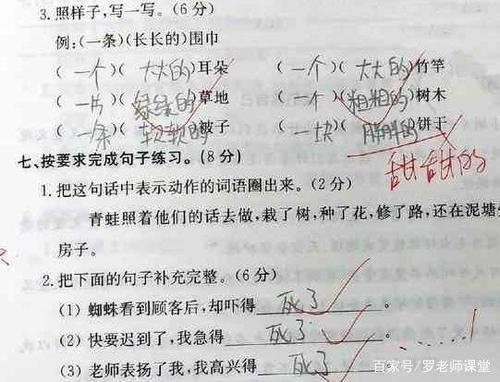 3.照样子,写一写。(6分)
例:(一条)(长长的)围巾
(一个)(大大的)耳朵 (一个)(大大的)竹竿
(一片)(绿绿的)草地 (一个)(粗粗的)树木
(一条)(软软的)被子 (一块)(胖胖的)饼干
甜甜的
七、按要求完成句子练习。(8分)
1.把这句话中表示动作的词语圈出来。(2分)
青蛙照着他们的话去做,栽了树,种了花,修了路,还在泥塘
房子。
2.把下面的句子补充完整。(6分)
(1) 蜘蛛看到顾客后,却吓得死了。
(2) 快要迟到了,我急得死了。......!
(3) 老师表扬了我,我高兴得死了。
百家号/罗老师课堂